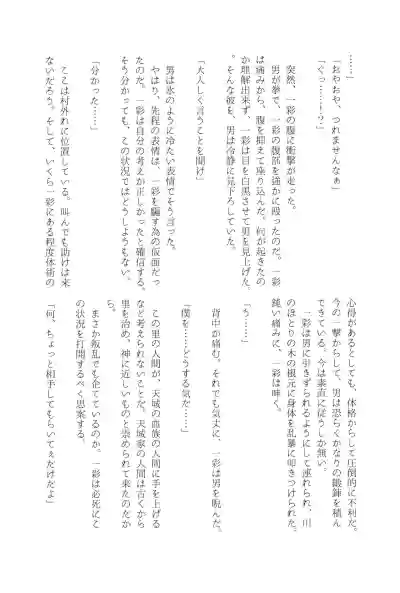 ……」
「おやおや、つれませんなぁ」
「ぐっ……！？」
　突然、一彩の腹に衝撃が走った。
　男が拳で、一彩の腹部を強かに殴ったのだ。一彩
は痛みから、腹を抑えて座り込んだ。何が起きたの
か理解出来ず、一彩は目を白黒させて男を見上げた。
そんな彼を、男は冷静に見下ろしていた。
「大人しく言うことを聞け」
　男は氷のように冷たい表情でそう言った。
　やはり、先程の表情は、一彩を騙す為の仮面だっ
たのだ。一彩は自分の考えが正しかったと確信する。
そう分かっても、この状況ではどうしようもない。
「分かった……」
　ここは村外れに位置している。叫んでも助けは来
ないだろう。そして、いくら一彩にある程度体術の
心得があるとしても、体格からして圧倒的に不利だ。
今の一撃からして、男は恐らくかなりの鍛錬を積ん
できている。今は素直に従うしか無い。
　一彩は男に引きずられるようにして連れられ、川
のほとりの木の根元に身体を乱暴に叩きつけられた。
鈍い痛みに、一彩は呻く。
「う……」
　背中が痛む。それでも気丈に、一彩は男を睨んだ。
「僕を……どうする気だ……」
　この里の人間が、天城の血族の人間に手を上げる
など考えられないことだ。天城家の人間は古くから
里を治め、神に近しいものと崇められて来たのだか
ら。
　まさか叛乱でも企てているのか。一彩は必死にこ
の状況を打開するべく思案する。
「何、ちょっと相手してもらいてぇだけだよ」